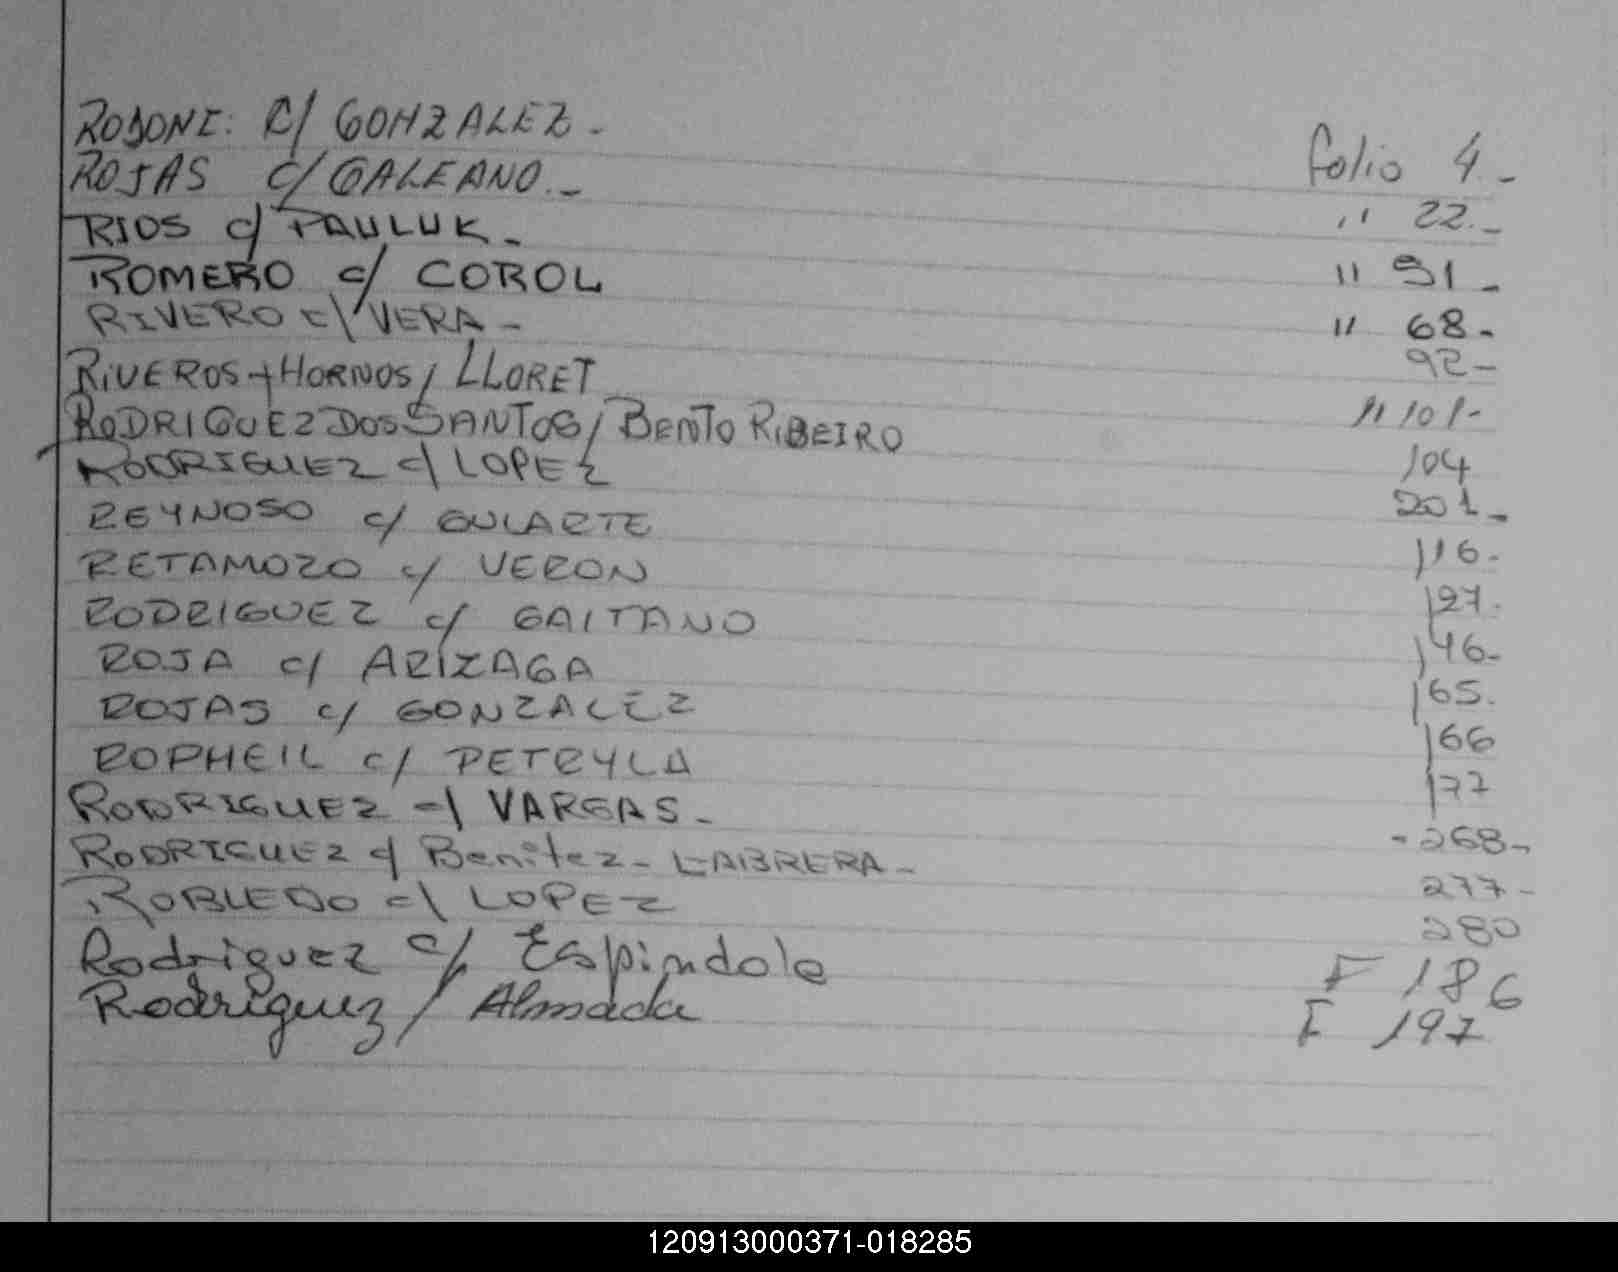 ROJONE: C/ GONZALEZ. folio 4.-
ROJAS c/ GALEANO.- " 22.-
RIOS c/ PAULUK.- " 51-
ROMERO c/ COROL " 68-
RIVERO c/ VERA- 92-
RIVEROS + HORNOS / LLORET " 101-
RODRIGUEZ DOS SANTOS / BENTO RIBEIRO 104
RODRIGUEZ c/ LOPEZ 201-
REYNOSO c/ GULARTE 116-
RETAMOZO c/ VERON 127.
RODRIGUEZ c/ GAITANO 146-
ROJA c/ ARIZAGA 165.
ROJAS c/ GONZALEZ 166
ROPHEIL c/ PETRYLA 177
RODRIGUEZ c/ VARGAS.- - 268-
RODRIGUEZ c/ Benitez- CABRERA- 277-
ROBLEDO c/ LOPEZ 280
Rodriguez c/ Espindola F 186
Rodriguez / Almada F 197
120913000371-018285